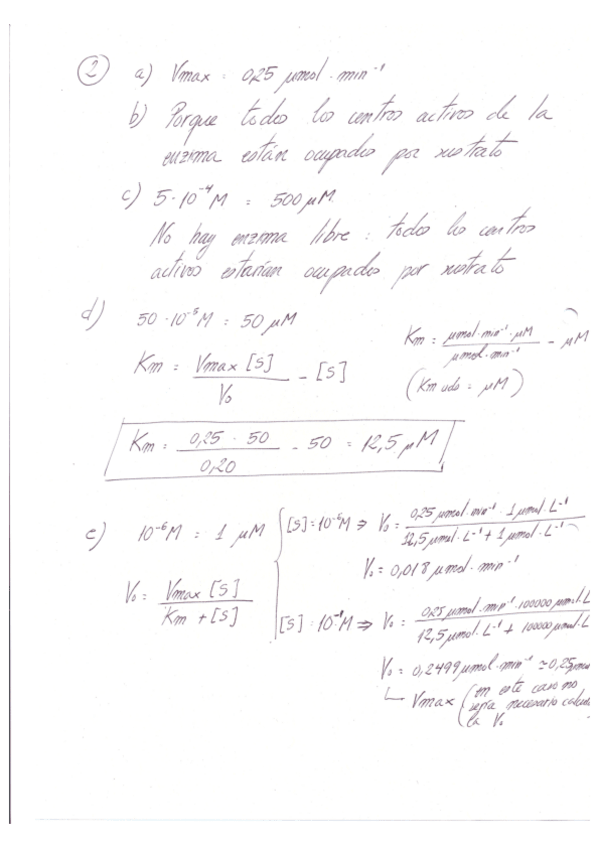 2 a) Vmax = 0,25 µmol · min⁻¹
b) Porque todos los centros activos de la
enzima están ocupados por sustrato
c) 5·10⁻⁴M = 500 µM.
No hay enzima libre : todos los centros
activos estarían ocupados por sustrato
d) 50 ·10⁻⁵M = 50 µM
Km = Vmax [S] / V₀ - [S]
Km = µmol·min⁻¹·µM / µmol·min⁻¹ - µM
(Km uds = µM)
Km = 0,25 · 50 / 0,20 - 50 = 12,5 µM
e) 10⁻⁶M = 1 µM
V₀ = Vmax [S] / Km + [S]
[S] = 10⁻⁶M ⇒ V₀ = 0,25 µmol·min⁻¹ · 1 µmol·L⁻¹ / 12,5 µmol·L⁻¹ + 1 µmol·L⁻¹
V₀ = 0,018 µmol · min⁻¹
[S] = 10⁻¹M ⇒ V₀ = 0,25 µmol·min⁻¹·100000 µmol·L / 12,5 µmol·L⁻¹ + 100000 µmol·L
V₀ = 0,2499 µmol·min⁻¹ ≃ 0,25
Vmax (en este caso no
sería necesario
la V₀